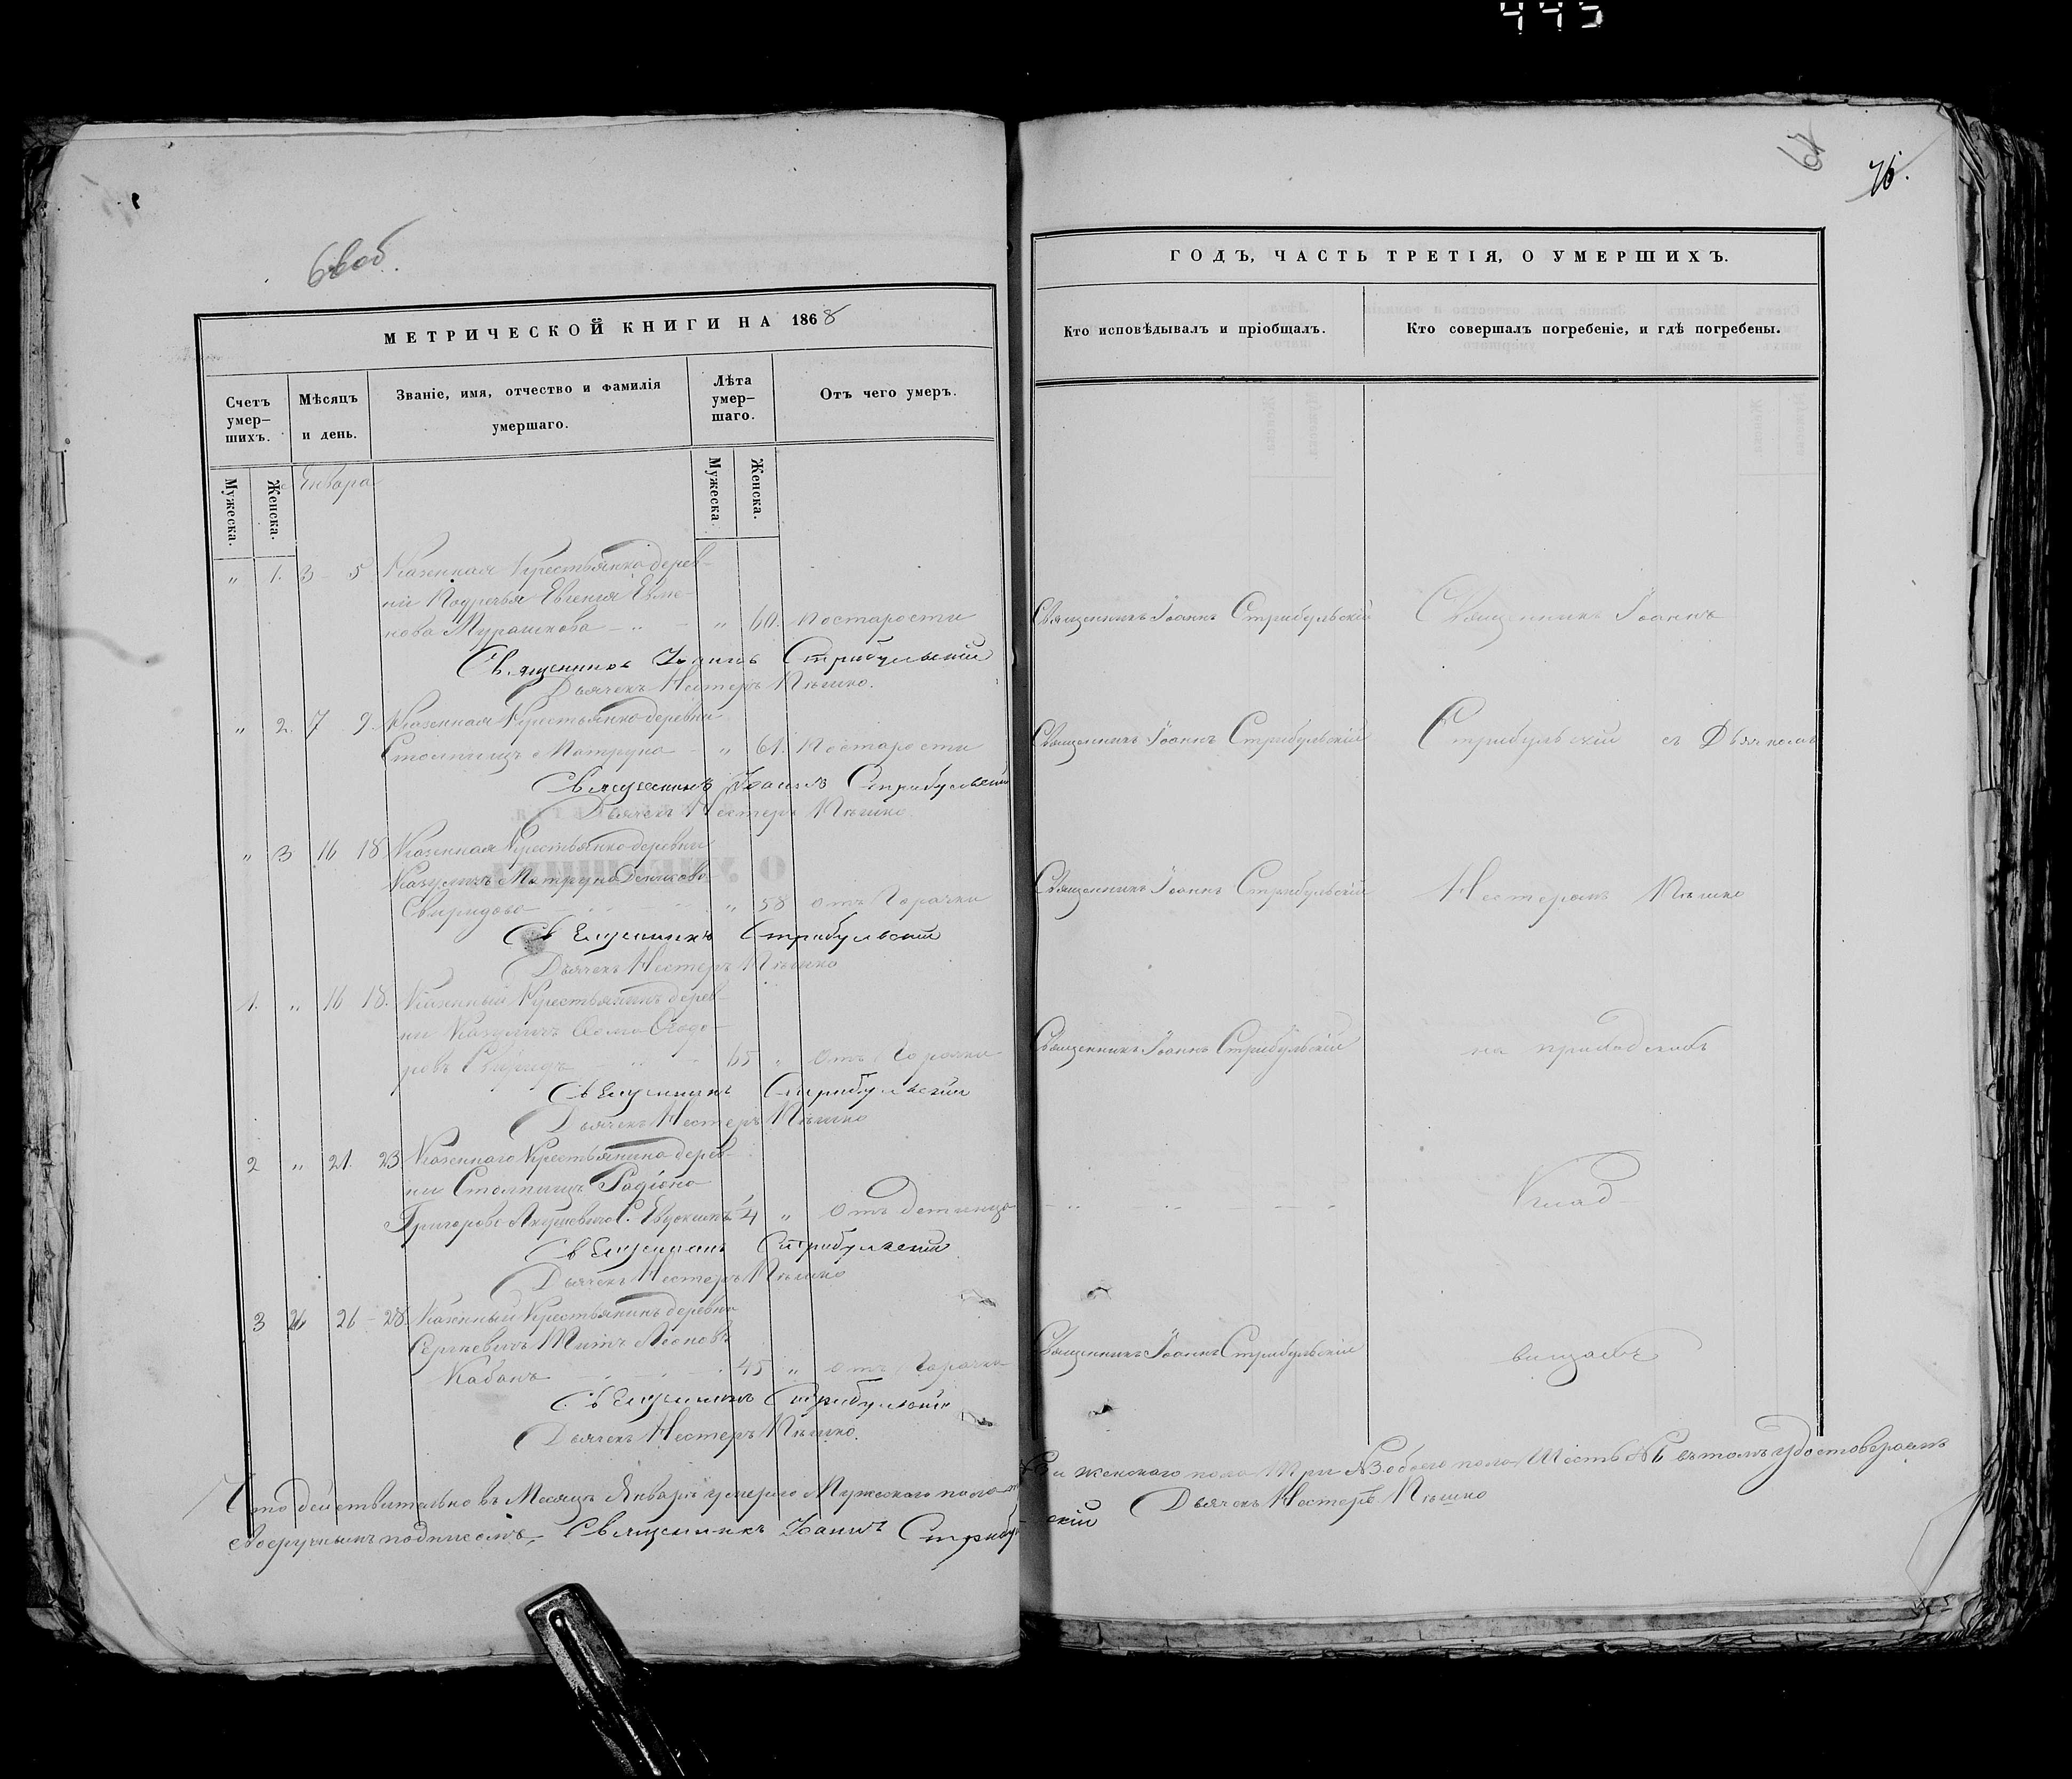 443
66об.
МЕТРИЧЕСКОЙ КНИГИ НА 1868
Счетъ умер-шихъ.
Мѣсяцъ и день.
Званіе, имя, отчество и фамилія умершаго.
Лѣта умер-шаго.
Отъ чего умеръ.
Мужеска.
Женска.
Января
Мужеска
Женска.
" 1. 3 5 Казенная Крестьянка дерев-
ни Подречья Евгенія
нова Мурашкова " 60. По старости
Священникъ Іоаннъ Стрибульскій
Дьячекъ Нестеръ Пѣшко.
" 2. 7 9. Казенная Крестьянка деревни
Столпищъ Матруна " 61. По старости
Священникъ Іоаннъ Стрибульскій
Дьячекъ Нестеръ Пѣшко
" 3 16 18 Казенная Крестьянка деревни
Казуличъ Матруна
Свиридова " 58 отъ Горячки
Священникъ Стрибульскій
Дьячекъ Нестеръ Пѣшко
1. " 16 18. Казенный Крестьянинъ дерев-
ни Казуличъ
ровъ Свиридъ 65 " отъ Горячки
Священникъ Стрибульскій
Дьячекъ Нестеръ Пѣшко
2 " 21. 23 Казеннаго Крестьянина дерев-
ни Столпищъ Радіона
Григорова С. Евдокимъ 4 " отъ
Священникъ Стрибульскій
Дьячекъ Нестеръ Пѣшко
3 26 - 28 Казенный Крестьянинъ деревни
Сергѣевичъ Титъ Леоновъ
Кабанъ 45 " отъ Горячки
Священникъ Стрибульскій
Дьячекъ Нестеръ Пѣшко.
Что действительно въ Месяцѣ Январѣ умерло Мужескаго пола
своеручнымъ подписомъ, Священникъ Іоаннъ Стрибуль
76.
ГОДЪ, ЧАСТЬ ТРЕТІЯ, О УМЕРШИХЪ.
Кто исповѣдывалъ и пріобщалъ.
Кто совершалъ погребеніе, и гдѣ погребены.
Священникъ Іоаннъ Стрибульскій Священникъ Іоаннъ
Священникъ Іоаннъ Стрибульскій Стрибульскій съ Дьячкомъ
Священникъ Іоаннъ Стрибульскій Нестеромъ Пѣшко
Священникъ Іоаннъ Стрибульскій на приходскомъ
Клад-
Священникъ Іоаннъ Стрибульскій бищѣ
и женскаго пола Три №3. обоего пола Шесть №6 въ томъ удостоверяемъ
скій Дьячекъ Нестеръ Пѣшко